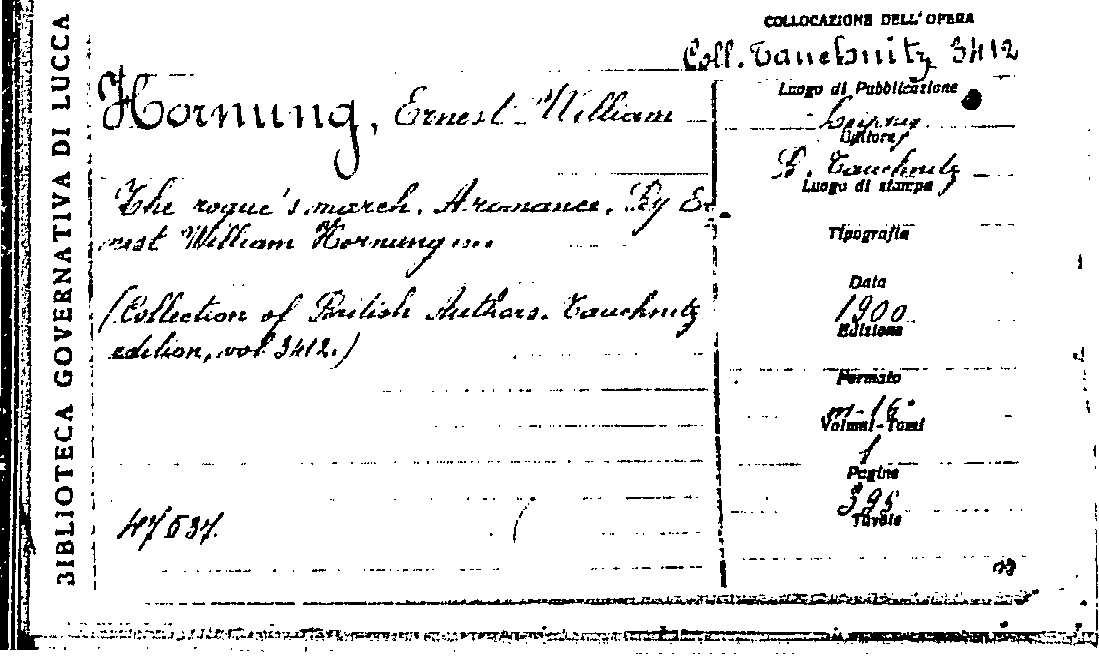 BIBLIOTECA GOVERNATIVA DI LUCCA
COLLOCAZIONE DELL'OPERA
Coll. Tauchnitz 3412
Hornung, Ernest William
The rogue's march. A romance. By Er
nest William Hornung...
(Collection of British Authors. Tauchnitz
edition, vol 3412.)
47537.
Luogo di Pubblicazione
Leipzig
Editore
B. Tauchnitz
Luogo di stampa
Tipografia
Data
1900
Edizione
Formato
in-16°
Volumi-Tomi
1
Pagine
395
Tavole